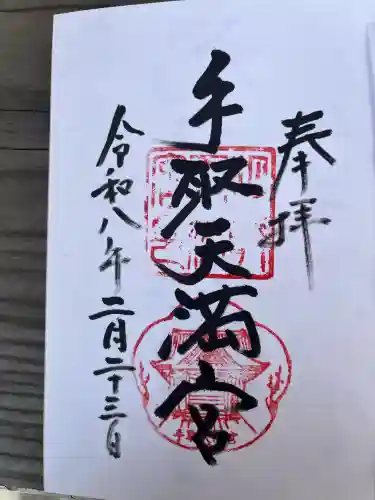 奉拝
手取天満宮
令和八年二月二十三日